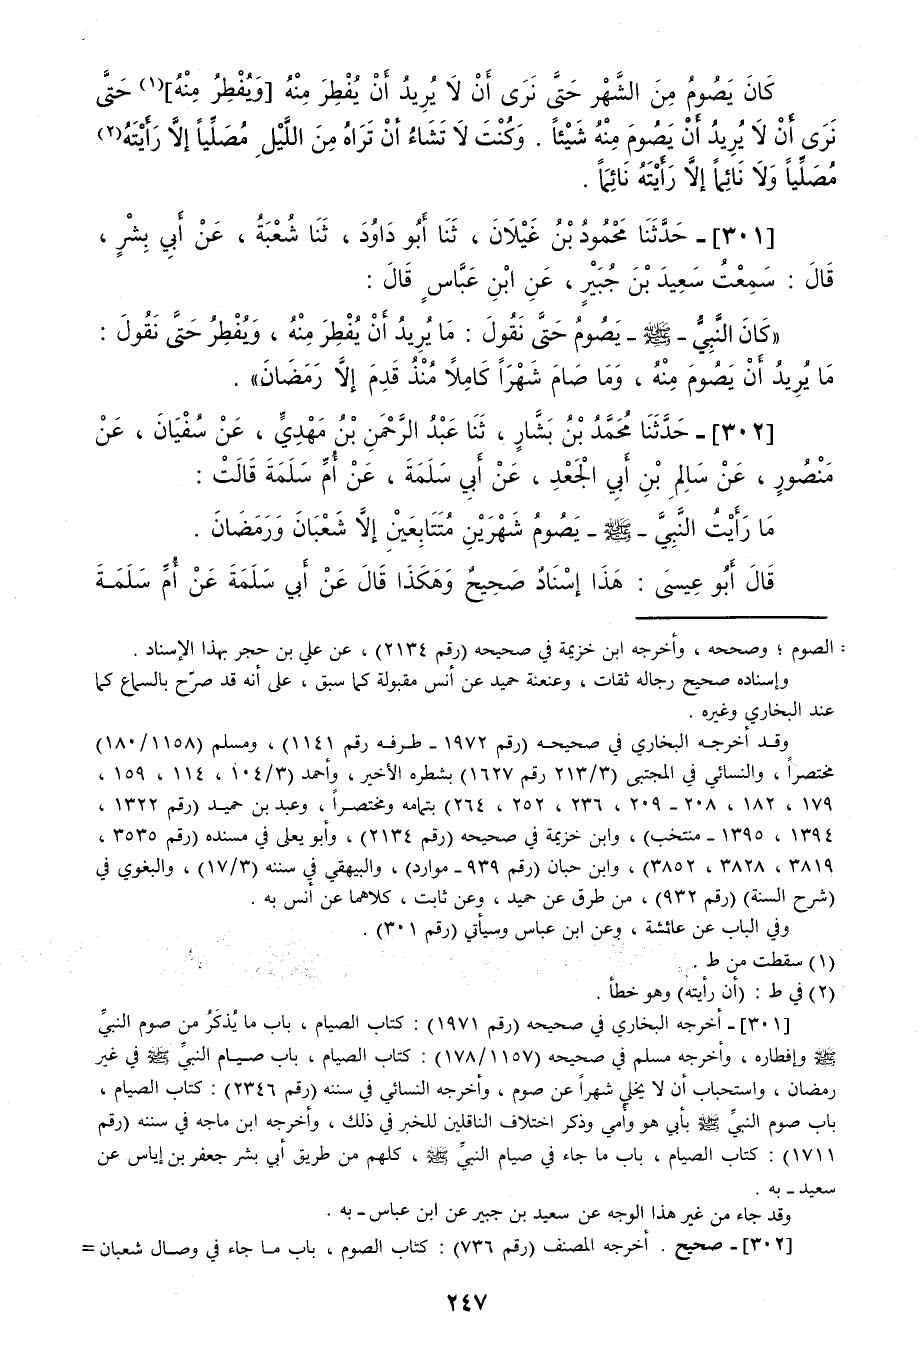 كَانَ يَصُومُ مِنَ الشَّهْرِ حَتَّى نَرَى أَنْ لَا يُرِيدُ أَنْ يُفْطِرَ مِنْهُ [وَيُفْطِرُ مِنْهُ](١) حَتَّى
نَرَى أَنْ لَا يُرِيدُ أَنْ يَصُومَ مِنْهُ شَيْئاً . وَكُنْتَ لَا تَشَاءُ أنْ تَرَاهُ مِنَ اللَّيْلِ مُصَلِّياً إلاَّ رَأَيْتَهُ(٢)
مُصَلِّياً وَلَا نَائِماً إلاَّ رَأَيْتَهُ نَائِماً .
[٣٠١] ـ حَدَّثَنَا مَحْمُودُ بْنُ غَيْلَانَ ، ثَنَا أَبُو دَاوُدَ ، ثَنَا شُعْبَةُ ، عَنْ أَبِي بِشْرٍ ،
قَالَ : سَمِعْتُ سَعِيدَ بْنَ جُبَيْرٍ ، عَنِ ابْنِ عَبَّاسٍ قَالَ :
«كَانَ النَّبِيُّ ـ ﷺ ـ يَصُومُ حَتَّى نَقُولَ : مَا يُرِيدُ أَنْ يُفْطِرَ مِنْهُ ، وَيُفْطِرُ حَتَّى نَقُولَ :
مَا يُرِيدُ أَنْ يَصُومَ مِنْهُ ، وَمَا صَامَ شَهْرَاً كَامِلًا مُنْذُ قَدِمَ إلاَّ رَمَضَانَ» .
[٣٠٢] ـ حَدَّثَنَا مُحَمَّدُ بْنُ بَشَّارٍ ، ثَنَا عَبْدُ الرَّحْمَنِ بْنُ مَهْدِيٍّ ، عَنْ سُفْيَانَ ، عَنْ
مَنْصُورٍ ، عَنْ سَالِمِ بْنِ أَبِي الْجَعْدِ ، عَنْ أَبِي سَلَمَةَ ، عَنْ أُمِّ سَلَمَةَ قَالَتْ :
مَا رَأَيْتُ النَّبِيَّ ـ ﷺ ـ يَصُومُ شَهْرَيْنِ مُتَتَابِعَيْنِ إلاَّ شَعْبَانَ وَرَمَضَانَ .
قَالَ أَبُو عِيسَى : هَذَا إسْنَادٌ صَحِيحٌ وَهَكَذَا قَالَ عَنْ أَبِي سَلَمَةَ عَنْ أُمِّ سَلَمَةَ
: الصوم ؛ وصححه ، وأخرجه ابن خزيمة في صحيحه (رقم ٢١٣٤) ، عن علي بن حجر بهذا الإسناد .
وإسناده صحيح رجاله ثقات ، وعنعنة حميد عن أنس مقبولة كما سبق ، على أنه قد صرّح بالسماع كما
عند البخاري وغيره .
وقد أخرجه البخاري في صحيحه (رقم ١٩٧٢ ـ طرفه رقم ١١٤١) ، ومسلم (١٨٠/١١٥٨)
مختصراً ، والنسائي في المجتبى (٢١٣/٣ رقم ١٦٢٧) بشطره الأخير ، وأحمد (١٠٤/٣ ، ١١٤ ، ١٥٩ ،
١٧٩ ، ١٨٢ ، ٢٠٨ ـ ٢٠٩ ، ٢٣٦ ، ٢٥٢ ، ٢٦٤) بتمامه ومختصراً ، وعبد بن حميد (رقم ١٣٢٢ ،
١٣٩٤ ، ١٣٩٥ ـ منتخب) ، وابن خزيمة في صحيحه (رقم ٢١٣٤) ، وأبو يعلى في مسنده (رقم ٣٥٣٥ ،
٣٨١٩ ، ٣٨٢٨ ، ٣٨٥٢) ، وابن حبان (رقم ٩٣٩ ـ موارد) ، والبيهقي في سننه (١٧/٣) ، والبغوي في
(شرح السنة) (رقم ٩٣٢) ، من طرق عن حميد ، وعن ثابت ، كلاهما عن أنس به .
وفي الباب عن عائشة ، وعن ابن عباس وسيأتي (رقم ٣٠١) .
(١) سقطت من ط .
(٢) في ط : (أن رأيته) وهو خطأ .
[٣٠١] ـ أخرجه البخاري في صحيحه (رقم ١٩٧١) : كتاب الصيام ، باب ما يُذكَرُ من صوم النبيِّ
ﷺ وإفطاره ، وأخرجه مسلم في صحيحه (١٧٨/١١٥٧) : كتاب الصيام ، باب صيام النبيِّ ﷺ في غير
رمضان ، واستحباب أن لا يخلي شهراً عن صوم ، وأخرجه النسائي في سننه (رقم ٢٣٤٦) : كتاب الصيام ،
باب صوم النبيِّ ﷺ بأبي هو وأمي وذكر اختلاف الناقلين للخبر في ذلك ، وأخرجه ابن ماجه في سننه (رقم
١٧١١) : كتاب الصيام ، باب ما جاء في صيام النبيِّ ﷺ ، كلهم من طريق أبي بشر جعفر بن إياس عن
سعيد ـ به .
وقد جاء من غير هذا الوجه عن سعيد بن جبير عن ابن عباس ـ به .
[٣٠٢] ـ صحيح . أخرجه المصنف (رقم ٧٣٦) : كتاب الصوم ، باب ما جاء في وصال شعبان =
٢٤٧